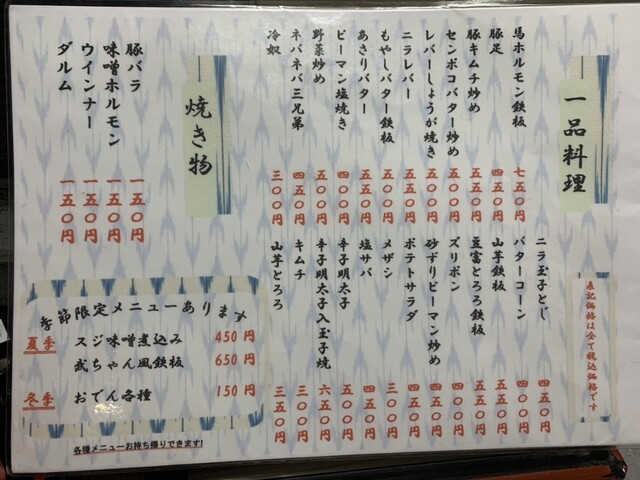 一品料理
馬ホルモン鉄板 七五〇円
豚足 四五〇円
豚キムチ炒め 五五〇円
センポコバター炒め 五五〇円
レバーしょうが焼き 五五〇円
ニラレバー 五五〇円
もやしバター鉄板 五五〇円
あさりバター 五五〇円
ピーマン塩焼き 四〇〇円
野菜炒め 五五〇円
ネバネバ三兄弟 四五〇円
冷奴 三〇〇円
表記価格は全て税込価格です
ニラ玉子とじ 四五〇円
バターコーン 四〇〇円
山芋鉄板 五五〇円
豆富とろろ鉄板 五五〇円
ズリポン 四〇〇円
砂ずりピーマン炒め 四五〇円
ポテトサラダ 四〇〇円
メザシ 三〇〇円
塩サバ 四五〇円
辛子明太子 五〇〇円
辛子明太子入玉子焼 六五〇円
キムチ 三〇〇円
山芋とろろ 三五〇円
焼き物
豚バラ 一五〇円
味噌ホルモン 一五〇円
ウインナー 一五〇円
ダルム 一五〇円
季節限定メニューあります
夏季 スジ味噌煮込み 450円
武ちゃん風鉄板 650円
冬季 おでん各種 150円
各種メニューお持ち帰りできます!